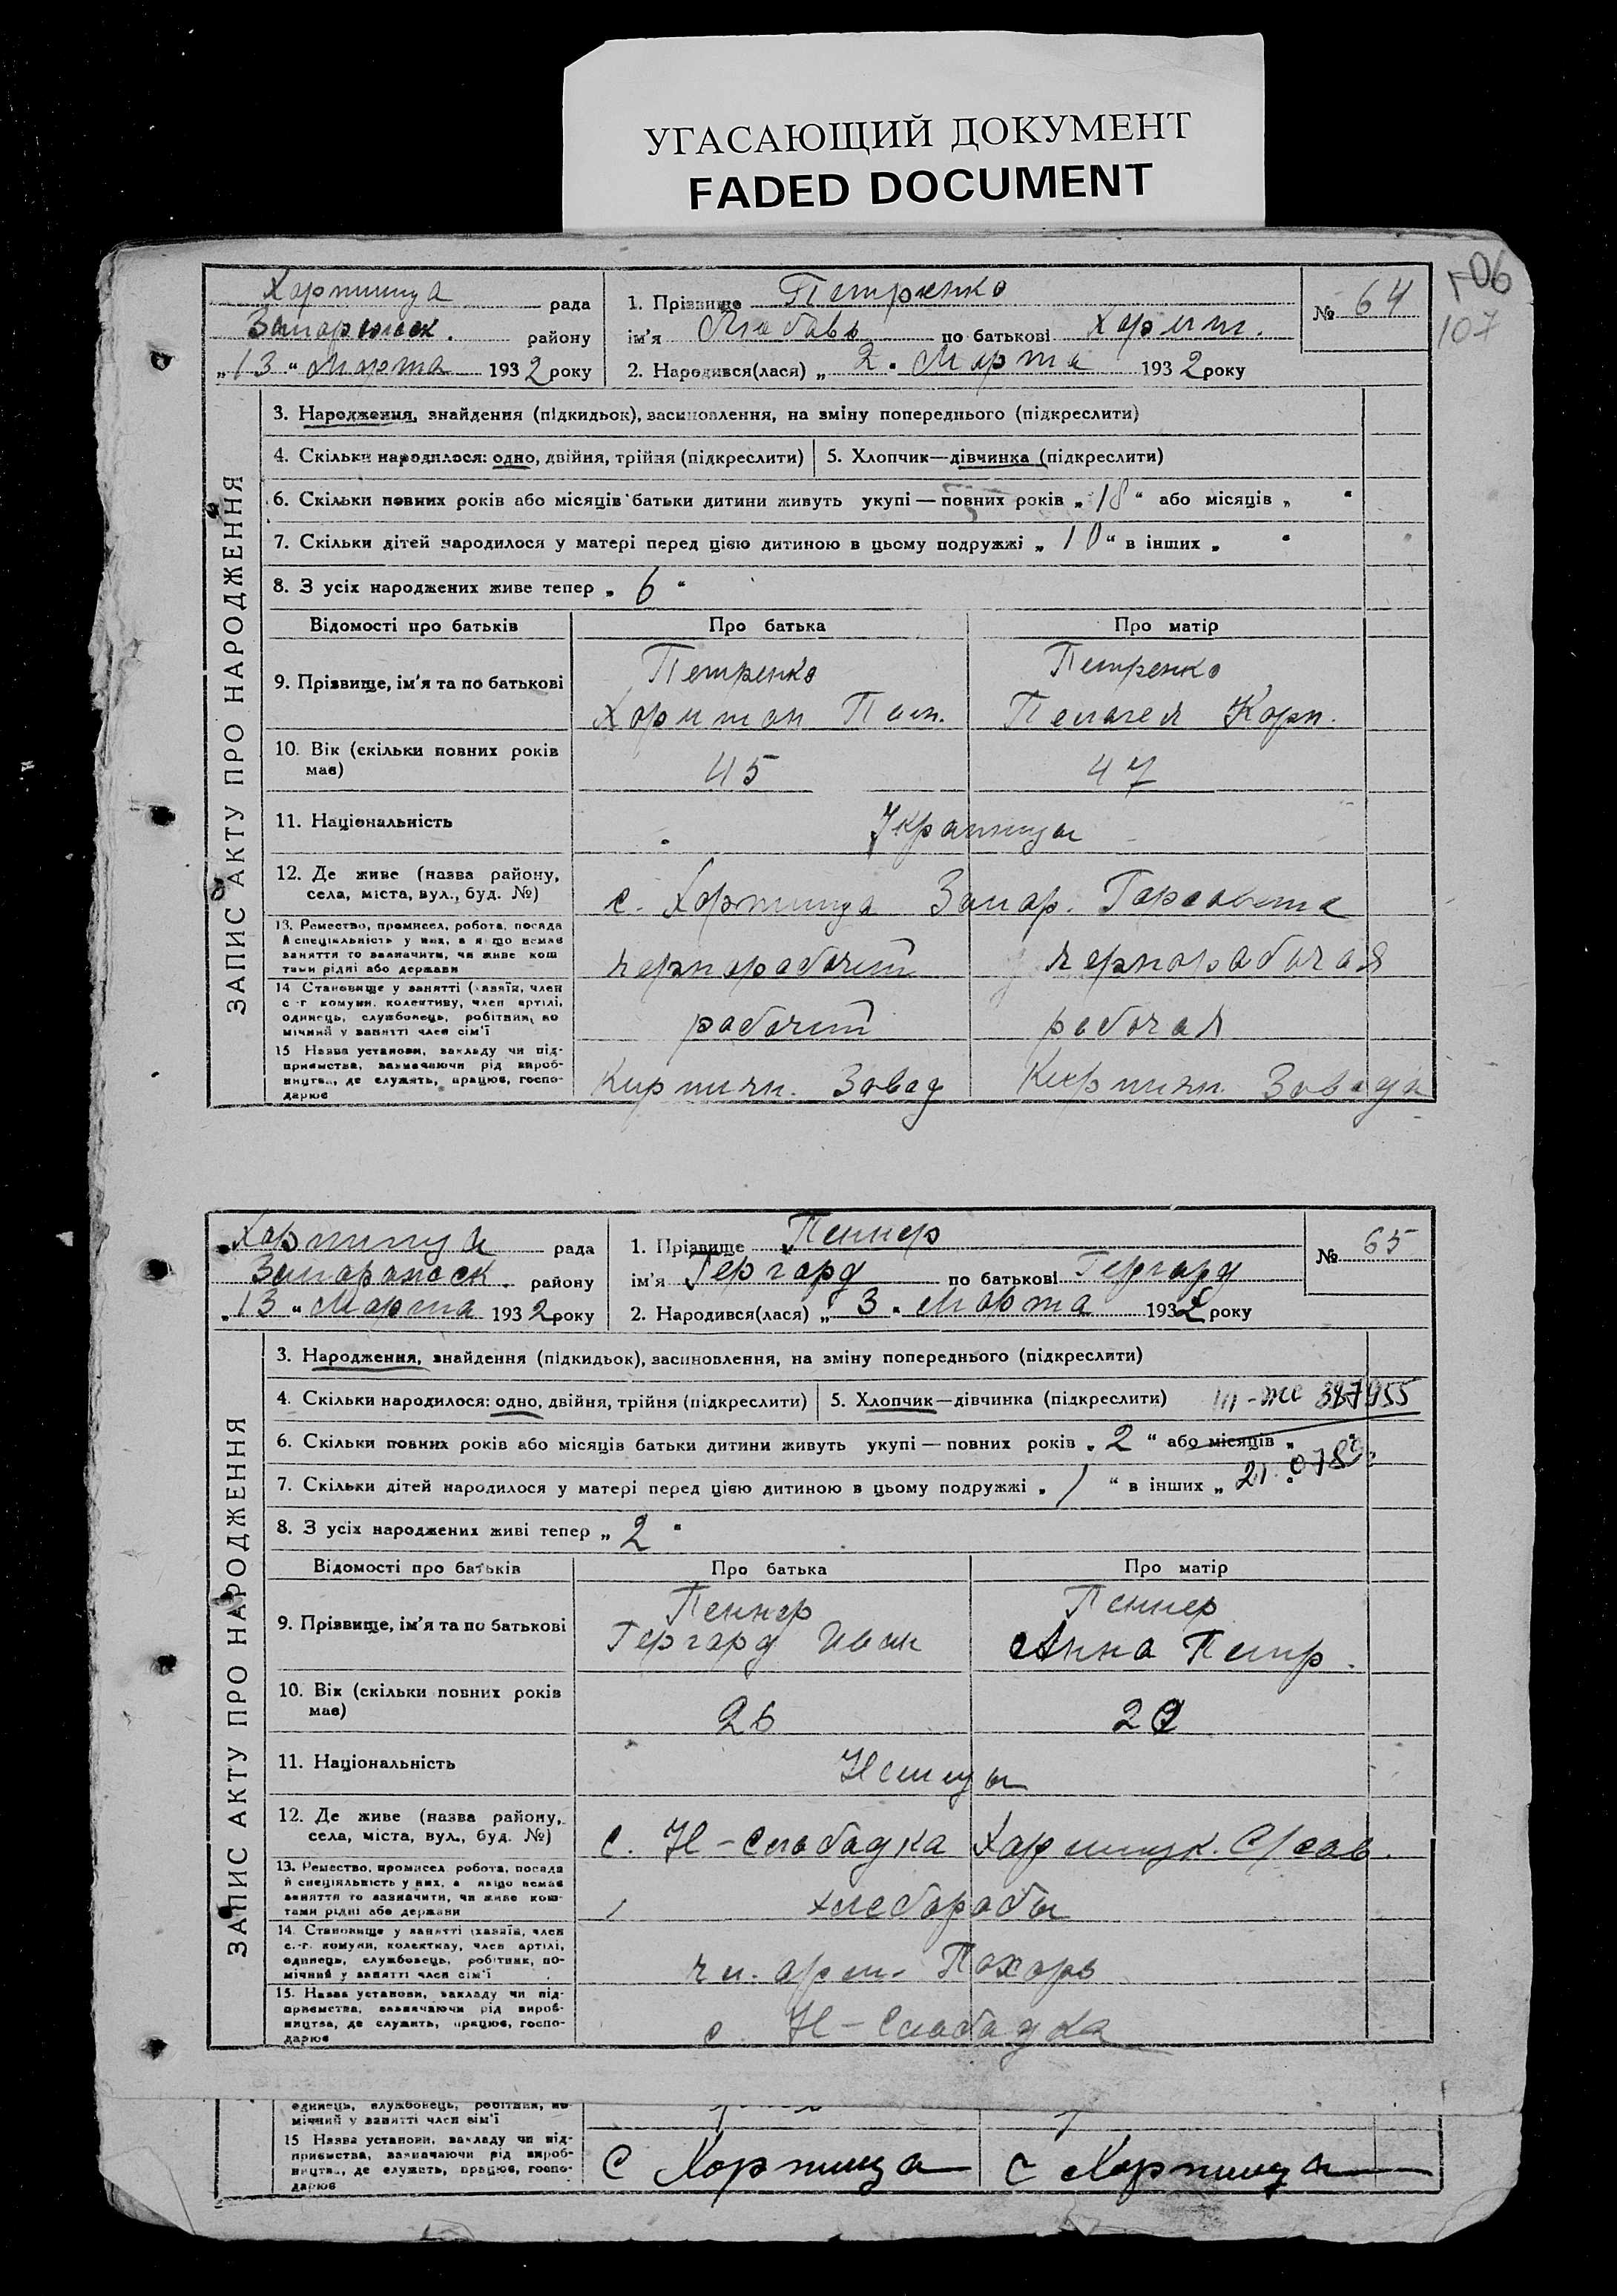 УГАСАЮЩИЙ ДОКУМЕНТ
FADED DOCUMENT
106
107
Хортица рада
Запорожск. району
„13“ Марта 1932 року
1. Прізвище Петренко
ім'я Любовь по батькові Харит.
2. Народився(лася) „2“ Марта 1932 року
№ 64
ЗАПИС АКТУ ПРО НАРОДЖЕННЯ
3. Народження, знайдення (підкидьок), засиновлення, на зміну попереднього (підкреслити)
4. Скільки народилося: одно, двійня, трійня (підкреслити) 5. Хлопчик—дівчинка (підкреслити)
6. Скільки повних років або місяців батьки дитини живуть укупі — повних років „18“ або місяців „ “
7. Скільки дітей народилося у матері перед цією дитиною в цьому подружжі „10“ в інших „ “
8. З усіх народжених живе тепер „6“
Відомості про батьків Про батька Про матір
9. Прізвище, ім'я та по батькові
Петренко Петренко
Харитон Пан. Пелагея Корн.
10. Вік (скільки повних років має) 45 47
11. Національність Украинцы
12. Де живе (назва району, села, міста, вул., буд. №)
с. Хортица Запор. Горсовета
13. Ремество, промисел, робота, посада й спеціяльність у них, а якщо немає заняття то зазначити, чи живе коштами рідні або держави
чернорабочий чернорабочая
14 Становище у занятті (хазяїн, член с.-г. комуни, колективу, член артілі, одинець, службовець, робітник, помічний у занятті член сім'ї
рабочий рабочая
15 Назва установи, закладу чи підприємства, зазначаючи рід виробництва, де служить, працює, господарює
Кирпичн. Завод Кирпичн. Завода
Хортица рада
Запорожск. району
„13“ Марта 1932 року
1. Прізвище Пеннер
ім'я Гергард по батькові Гергард
2. Народився(лася) „3“ Марта 1932 року
№ 65
ЗАПИС АКТУ ПРО НАРОДЖЕННЯ
3. Народження, знайдення (підкидьок), засиновлення, на зміну попереднього (підкреслити)
4. Скільки народилося: одно, двійня, трійня (підкреслити) 5. Хлопчик—дівчинка (підкреслити) III-ЖС 387955
6. Скільки повних років або місяців батьки дитини живуть укупі — повних років „2“ або місяців „ “
7. Скільки дітей народилося у матері перед цією дитиною в цьому подружжі „1“ в інших „ “
8. З усіх народжених живі тепер „2“
Відомості про батьків Про батька Про матір
9. Прізвище, ім'я та по батькові
Пеннер Пеннер
Гергард Иван Анна Петр.
10. Вік (скільки повних років має) 26
11. Національність Немцы
12. Де живе (назва району, села, міста, вул., буд. №)
с. Н-Слабадка Хортицк. С/сов.
13. Ремество, промисел робота, посада й спеціяльність у них, а якщо немає заняття то зазначити, чи живе коштами рідні або держави
хлеборобы
14. Становище у занятті (хазяїн, член с.-г. комуни, колективу, член артілі, одинець, службовець, робітник, помічний у занятті член сім'ї
чл. арт. Пахарь
15. Назва установи, закладу чи підприємства, зазначаючи рід виробництва, де служить, працює, господарює
с. Н-Слабадка
одинець, службовець, робітник, помічний у занятті член сім'ї
15 Назва установи, закладу чи підприємства, зазначаючи рід виробництва, де служить, працює, господарює
С Хортица С Хортица